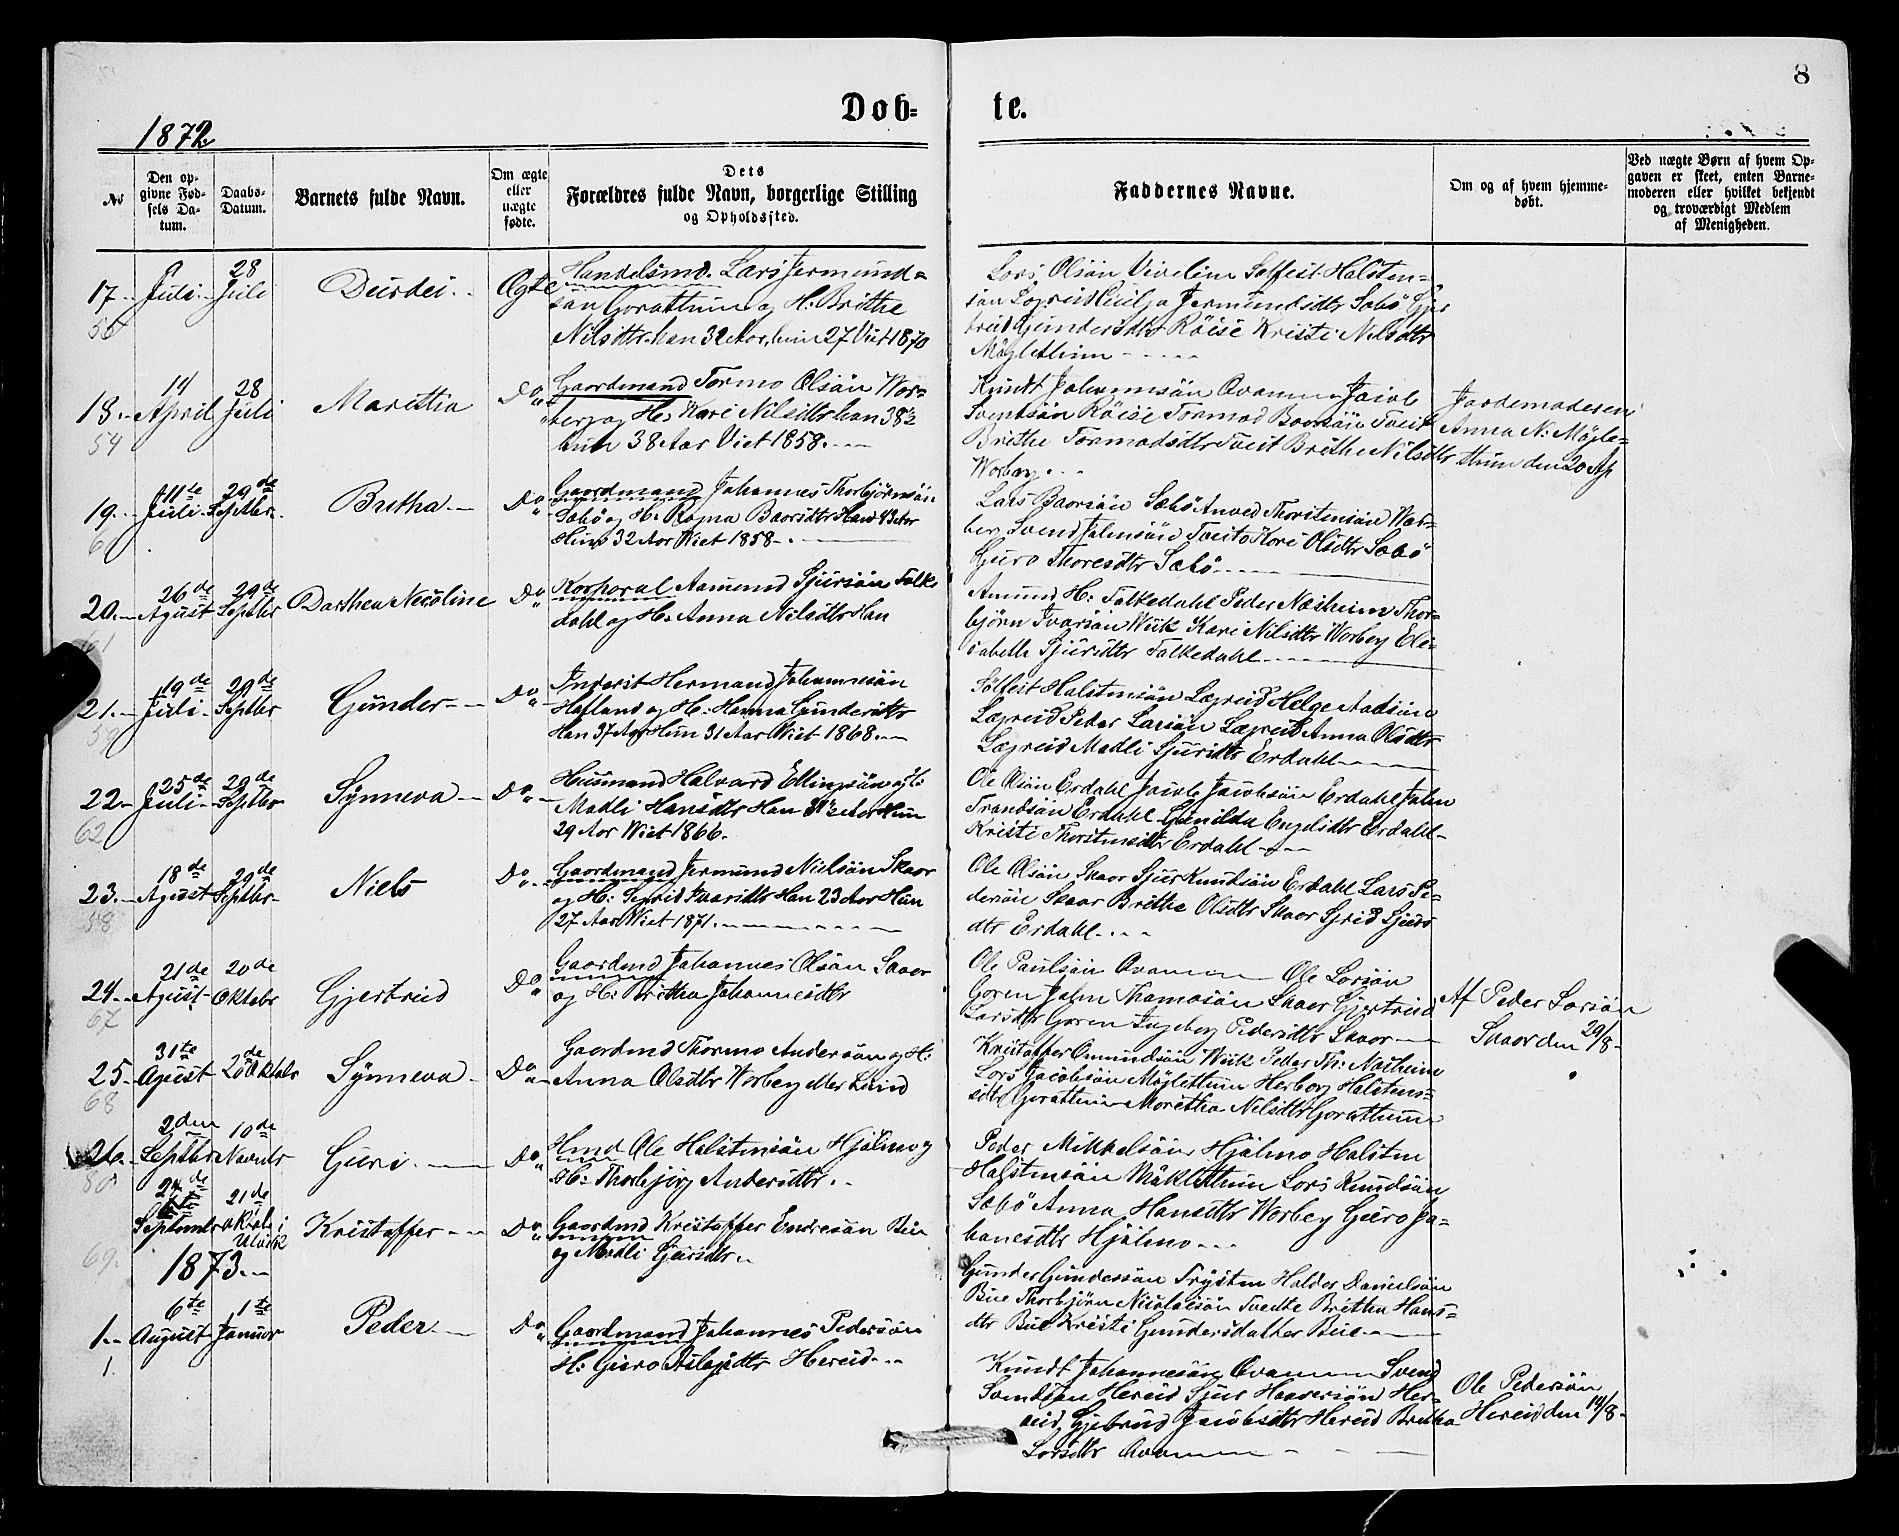 8
Døb-
te.
1872.
No
Den op-
givne Fød-
sels Da-
tum.
Daabs-
Datum.
Barnets fulde Navn.
Om ægte
eller
uægte
fødte.
Dets
Forældres fulde Navn, borgerlige Stilling
og Opholdssted.
Faddernes Navne.
Om og af hvem hjemme-
døbt.
Ved uægte Børn af hvem Op-
gaven er skeet, enten Barne-
moderen eller hvilket bekjendt
og troværdigt Medlem
af Menigheden.
17
Juli
28
Juli
Durdei
Ægte
Handelsmd. Lars Jermund-
søn Gorattun og H: Brithe
Nilsdtr. han 32 Aar, hun 27 Viet 1870
Lars Olsøn Vivelim Solfest Halsten-
søn Lægreid Jermundsdtr Sæbø Gjer
treid Gundersdtr Røise Kristi Nilsdtr
Møglethun
18
54
14
April
28
Juli
Marethia
Do
Gaardmand Tormo Olsøn Wor-
berg og H: Kari Nilsdtr han 38½
hun 38 Aar Viet 1858.
Knudt Johannsøn Qvammen Jacob
Svendsøn Røise Tormod Baarsøn Tveit
Brithe Tormodsdtr Tveit Brithe Nilsdtr
Worberg
Jordemoderen
Anna N: Møgle-
thun den 20 Ap
19
11te
Juli
29de
Septbr
Britha
Do
Gaardmand Johannes Thorbjørnsøn
Sæbø og H: Ragna Baarsdtr Han 43 Aar
Hun 32 Aar Viet 1858
Lars Baarsøn Sæbø Anved Thorstensøn Wor-
berg Svend Johnsøn Tveito Kari Olsdtr Sæbø
Guro Thoresdtr Sæbø
20
61
26de
Agust
29de
Septbr
Dorthea Nicoline
Do
Korporal Aamund Sjursøn Falke
dahl og H: Anna Nilsdtr Han
Amund H: Falkedahl Peder Nasheim Thor-
bjørn Ivarsøn Wiik Kari Nilsdtr Worberg Eli-
sabeth Sjursdtr Falkedahl
21
59
19de
Juli
29de
Septbr
Gunder
Do
Inderst Hermand Johannesøn
Hafland og H: Hanna Gundersdtr
Han 37 Aar Hun 31 Aar Wiet 1868
Sølfest Halstensøn Lægreid Helge Aadsøn
Lægreid Peder Larsøn Lægreid Anna Olsdtr
Lægreid Madli Sjursdtr Erdahl
22
62
25de
Juli
29de
Septbr
Synneva
Do
Husmand Halvard Ellingsøn og H:
Madli Hansdtr Han 31½ Aar Hun
29 Aar Wiet 1866.
Ole Olsøn Erdahl Jacob Jacobsøn Erdahl John
Trondsøn Erdahl Gunilda Engelsdtr Erdahl
Kristi Thorstensdtr Erdahl
23
58
18de
Agust
29de
Septbr
Niels
Do
Gaardmand Jermund Nielsøn Skaar
og H: Sigrid Ivarsdtr Han 23 Aar Hun
27 Aar Wiet 1871.
Ole Olsøn Skaar Sjur Knudsøn Erdahl Lars Pe-
dersøn Skaar Brithe Olsdtr Skaar Sjrid Sjurs
dtr Erdahl
24
67
21de
Agust
20de
Oktobr
Gjertrud
Do
Gaardmd Johannes Olsøn Skaar
og H: Britha Johannesdtr
Ole Paulsøn Qvammen Ole Larsøn
Garen John Thomasøn Skaar Gjertreid
Larsdtr Garen Ingeborg Pedersdtr Skaar
Af Peder Larsøn
Skaar den 29/8
25
68
31te
Agust
20de Oktobr
Synneva
Do
Gaardmd Thormo Andersøn og H:
Anna Olsdtr Worberg eller Lund
Kristoffer Omundsøn Wiik Peder Th: Nasheim
Lars Jacobsøn Møglethun Herborg Halstens-
sdtr Gorattun Maretha Nilsdtr Gorattun
26
80
2den
Septbr
10de
Novembr
Guri
Do
Hmd Ole Halstensøn Hjølmo og
H: Thorbjørg Andersdtr
Peder Mikkelsøn Hjølmo Halsten
Halstensøn Møklethun Lars Knudsøn
Sæbø Anna Hansdtr Worberg Guro Jo-
hanesdtr Hjølmo
69.
24de
September
21de
Oktob i
Ulvik
Kristoffer
Do
Gaardmd Kristoffer Endresøn Bue
og Madli Sjursdtr
Gunder Gundersøn Trysten Haldor Danielsøn
Bue Thorbjørn Nicolaisøn Tveite Britha Hans-
dtr Bue Kristi Gundersdatter Bue
1873.
1
1.
6te
August
1te
Januar
Peder
Do
Gaardmand Johannes Pedersøn
H: Guro Aslagsdtr Hereid
Knudt Johannesøn Qvammen Svend
Svendsøn Hereid Sjur Haaversøn Her-
eid Gjetrud Jacobsdtr Hereid Britha
Larsdtr Qvammen
Ole Pedersøn
Hereid den 14/8